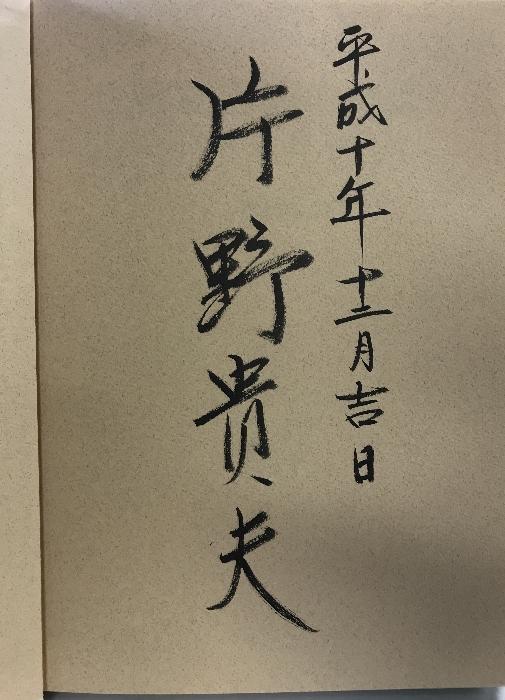 平成十年十二月吉日
片野贵夫